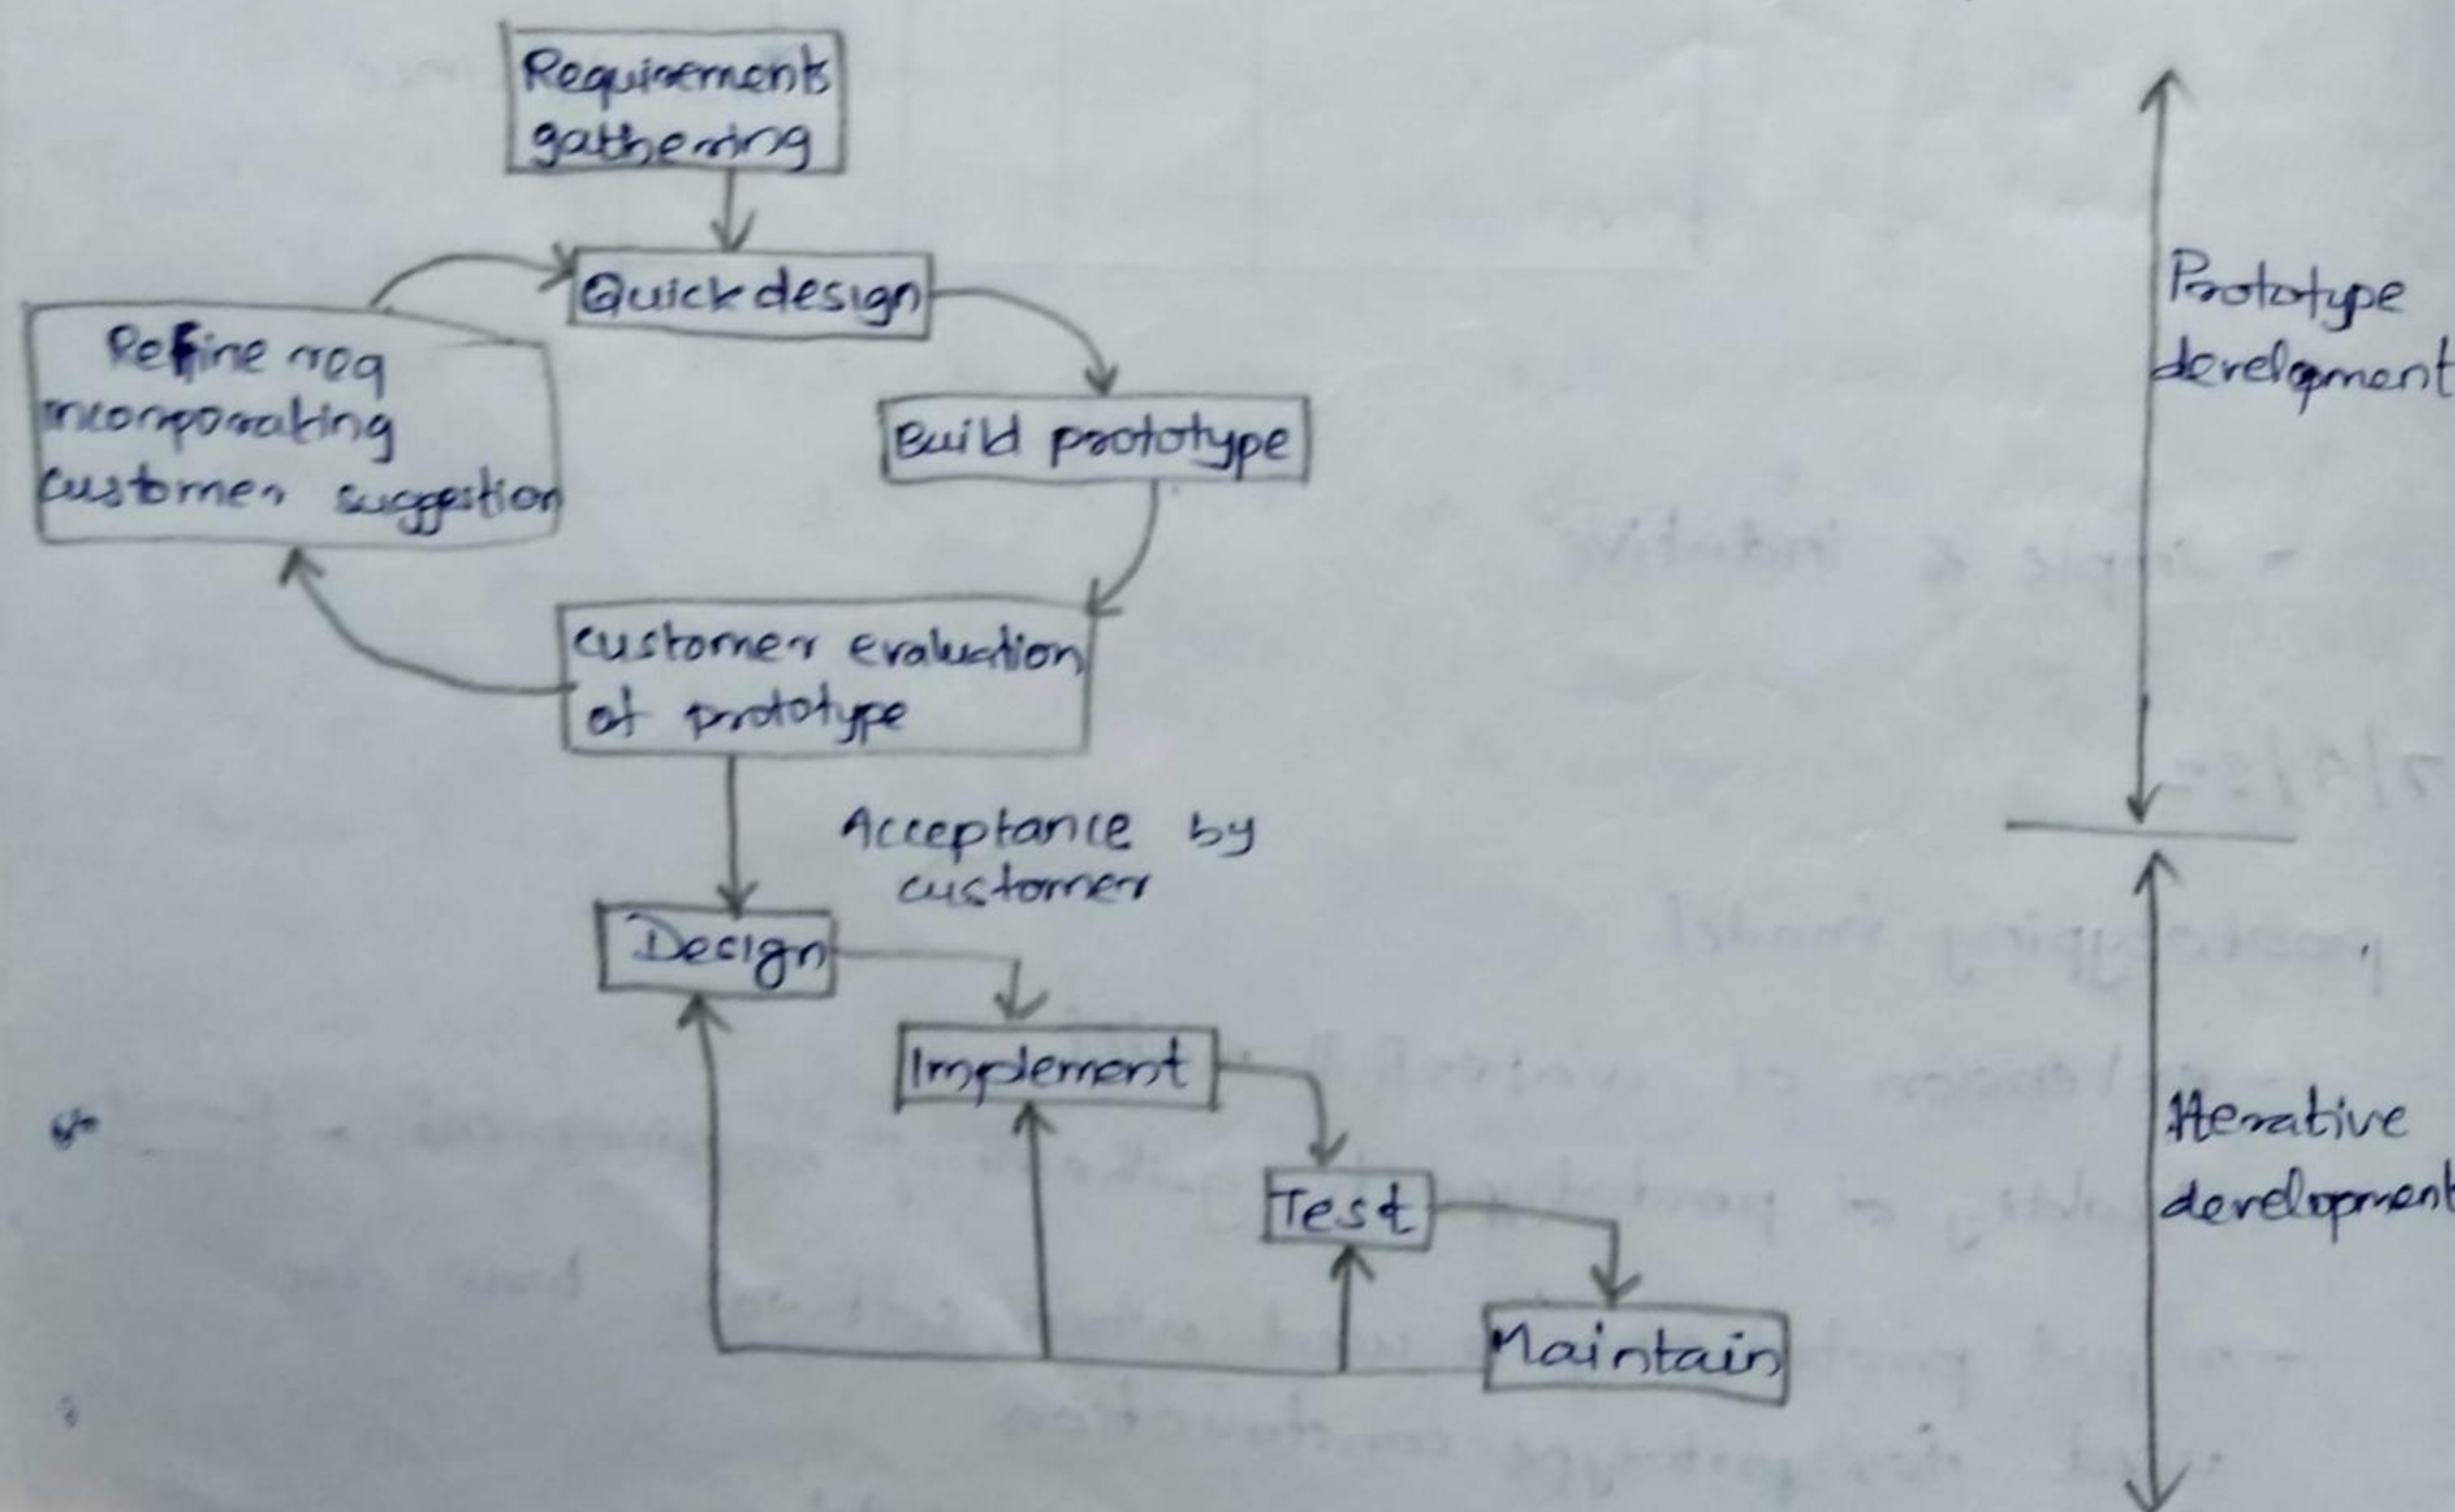 Requirements
gathering
Quick design
Refine req
incorporating
customer suggestion
Build prototype
customer evaluation
of prototype
Acceptance by
customer
Design
Implement
Test
Maintain
Prototype
development
Iterative
development